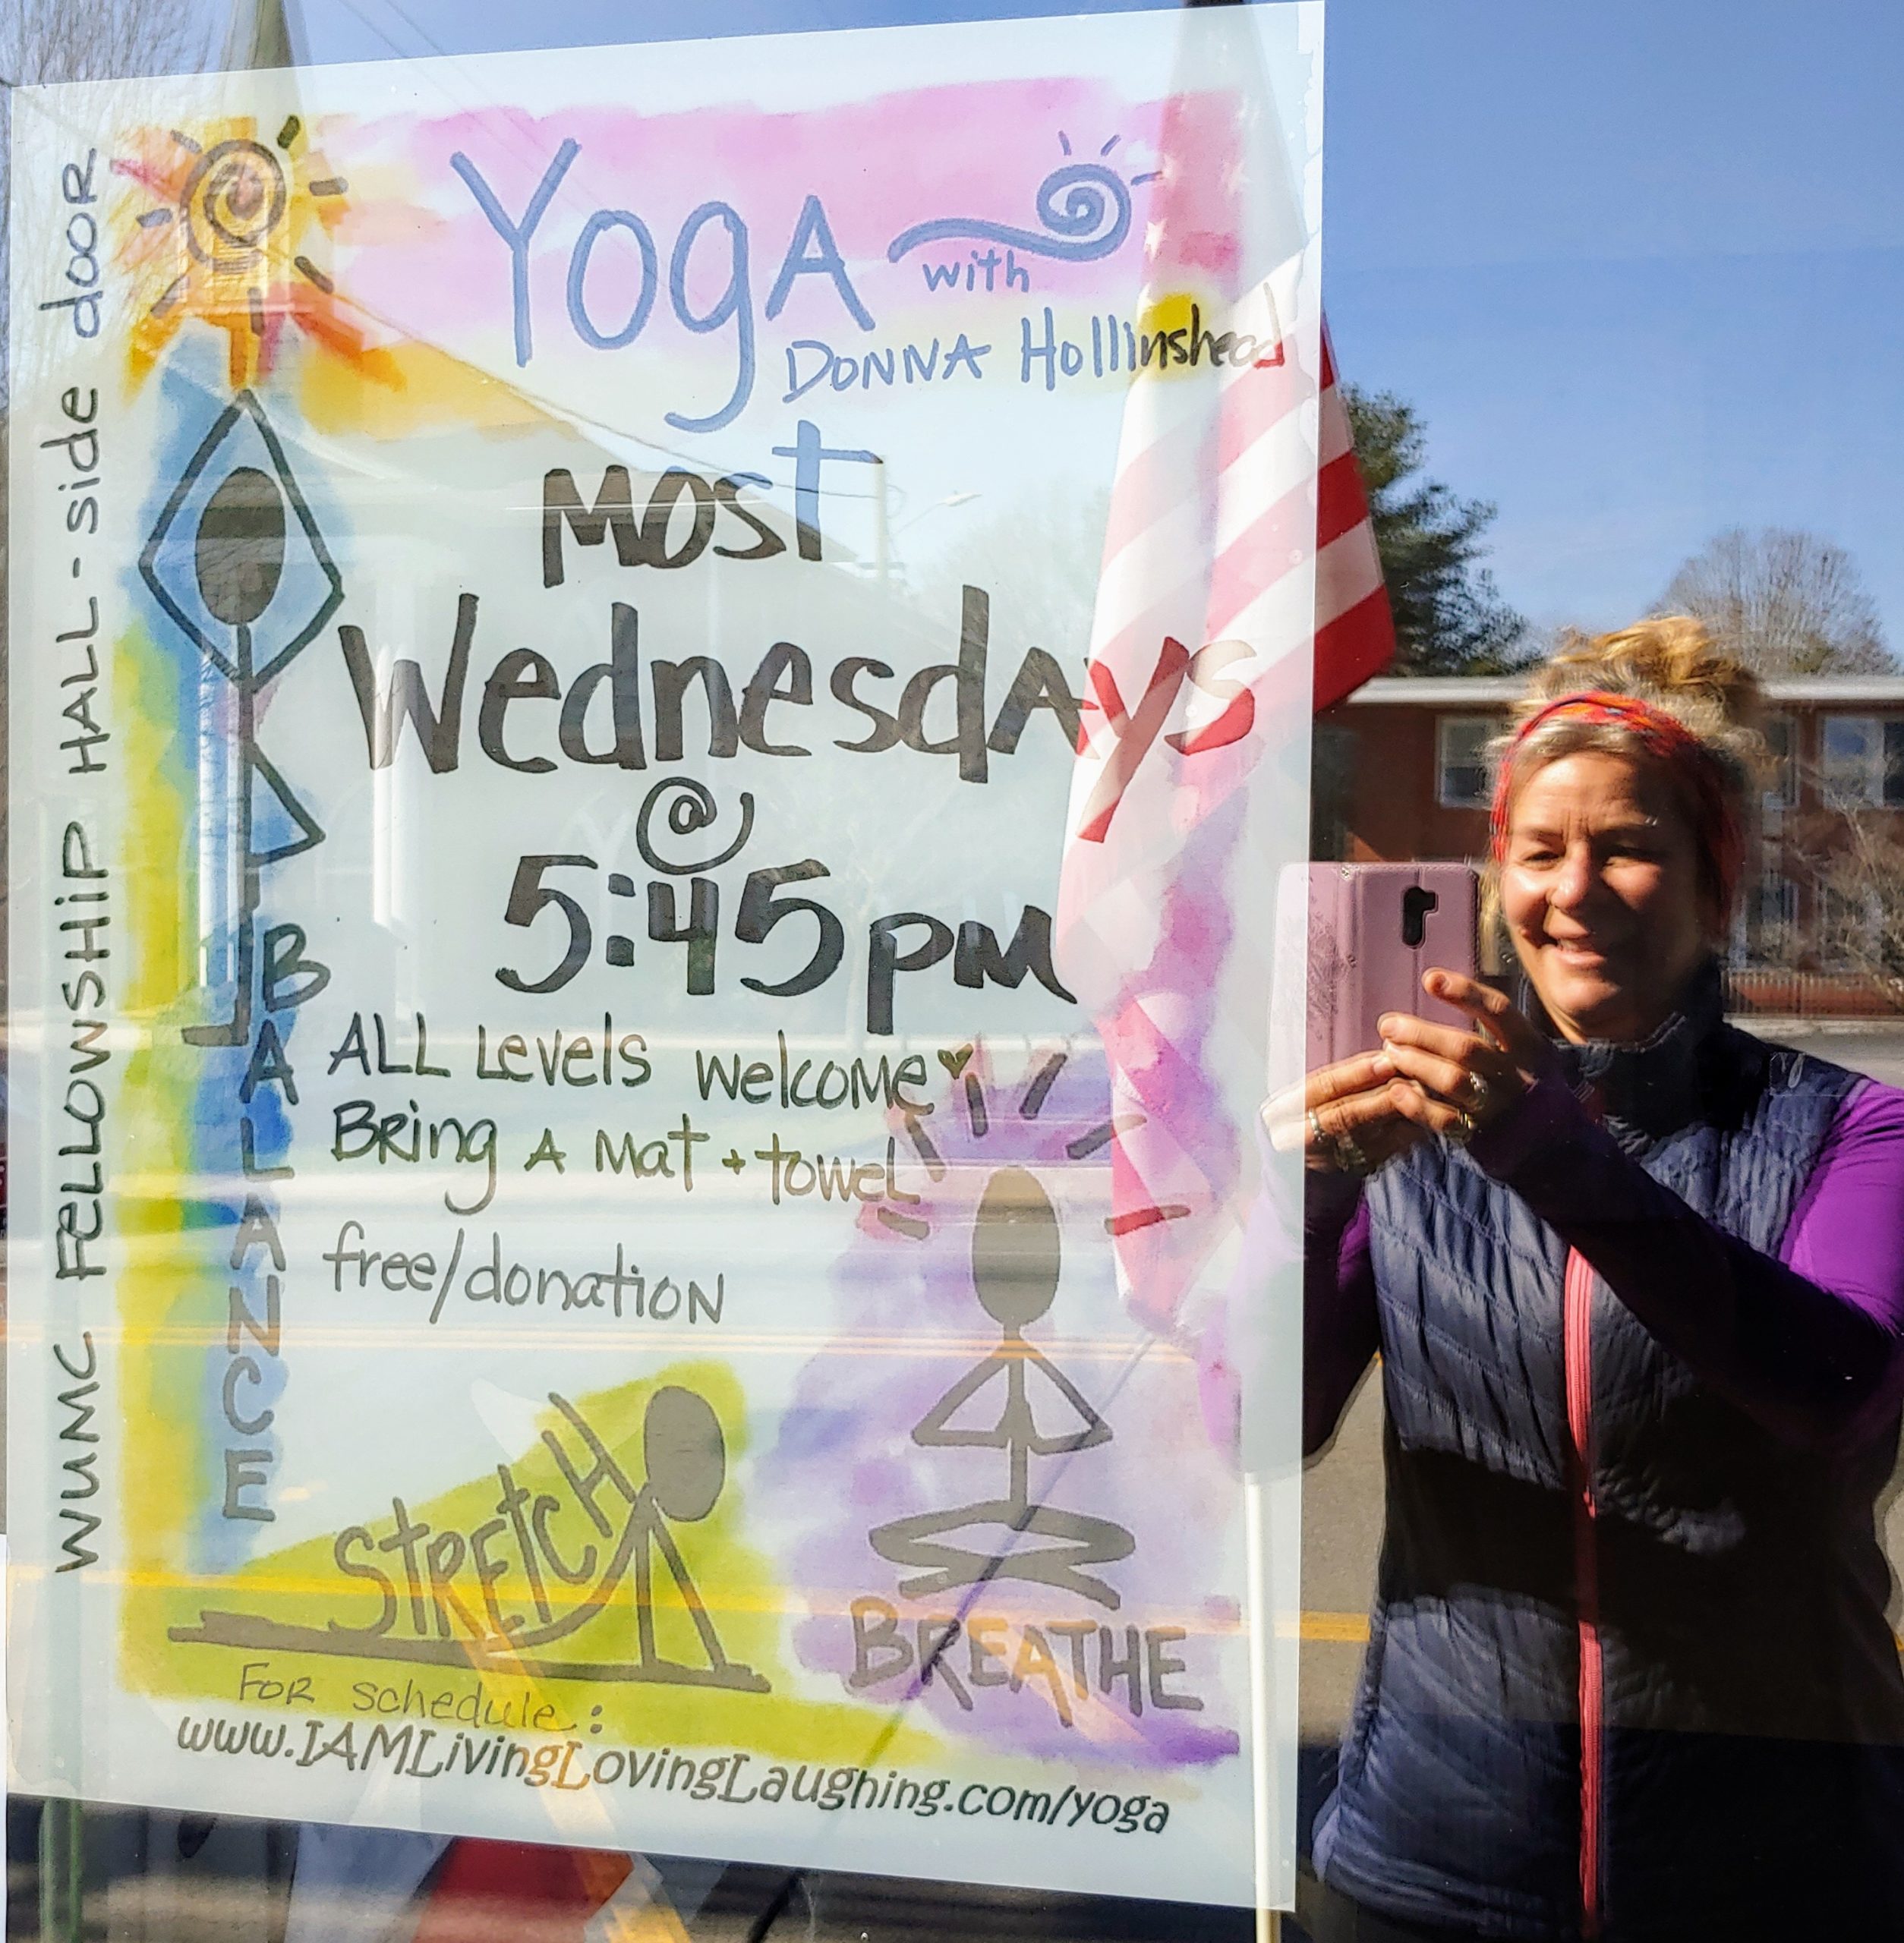 YogA
with
DONNA Hollinshead
MOST
WednesdAys
@
5:45PM
ALL Levels welcome
Bring A Mat + towel
free/donation
BALANCE
STRETCH
BREATHE
For schedule:
www.IAMLivingLovingLaughing.com/yoga
WUMC FELLOWSHiP HALL - side dooR